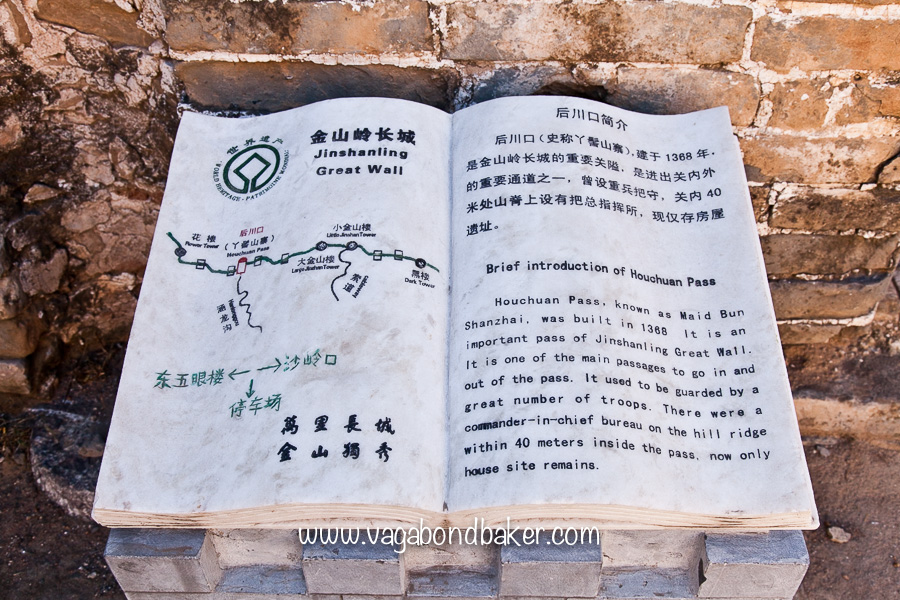 世界遗产
WORLD HERITAGE · PATRIMOINE MONDIAL
金山岭长城
Jinshanling
Great Wall
花楼
Flower Tower
后川口
(丫髻山寨)
Houchuan Pass
小金山楼
Little Jinshan Tower
大金山楼
Large Jinshan Tower
索道
黑楼
Dark Tower
涵龙沟
东五眼楼←→沙岭口
↓
停车场
萬里長城
金山獨秀
后川口简介
后川口(史称丫髻山寨),建于1368年,
是金山岭长城的重要关隘,是进出关内外
的重要通道之一,曾设重兵把守,关内40
米处山脊上设有把总指挥所,现仅存房屋
遗址。
Brief introduction of Houchuan Pass
Houchuan Pass, known as Maid Bun
Shanzhai, was built in 1368 It is an
important pass of Jinshanling Great Wall.
It is one of the main passages to go in and
out of the pass. It used to be guarded by a
great number of troops. There were a
commander-in-chief bureau on the hill ridge
within 40 meters inside the pass, now only
house site remains.
www.vagabondbaker.com